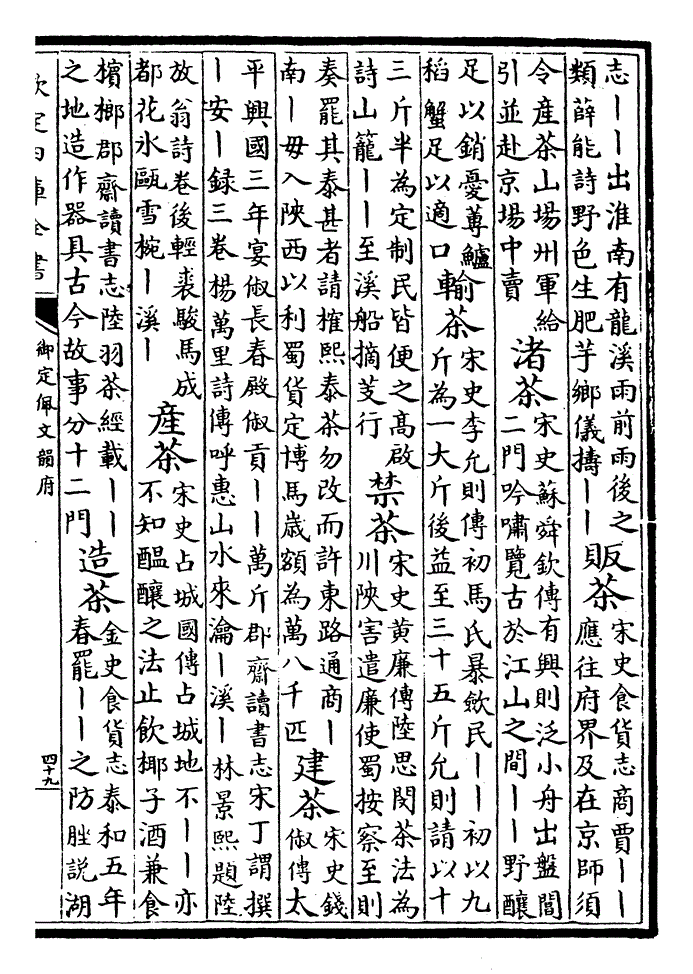 志——出淮南有龍溪雨前雨後之
類薛能詩野色生肥芋鄉儀擣——
販茶
宋史食貨志商賈——
應往府界及在京師須
令産茶山場州軍給
引並赴京場中賣
渚茶
宋史蘇舜欽傳有興則泛小舟出盤閶
二門吟嘯覽古於江山之間——野釀
足以銷憂尊鱸
稻蟹足以適口
輸茶
宋史李允則傳初馬氏暴歛民——初以九
斤為一大斤後益至三十五斤允則請以十
三斤半為定制民皆便之髙啟
詩山籠——至溪船摘芰行
禁茶
宋史黄廉傳陸思閔茶法為
川陜害遣廉使蜀按察至則
奏罷其泰甚者請榷熙泰茶勿改而許東路通商—
南—毋入陜西以利蜀貨定博馬歳額為萬八千匹
建茶
宋史錢
俶傳太
平興國三年宴俶長春殿俶貢——萬斤郡齋讀書志宋丁謂撰
—安—録三巻楊萬里詩傳呼惠山水來瀹—溪—林景熙題陸
放翁詩卷後輕裘駿馬成
都花氷甌雪椀—溪—
産茶
宋史占城國傳占城地不——亦
不知醖釀之法止飲椰子酒兼食
檳榔郡齋讀書志陸羽茶經載——
之地造作器具古今故事分十二門
造茶
金史食貨志泰和五年
春罷——之防脞説湖
欽定四庫全書
御定佩文韻府
四十九